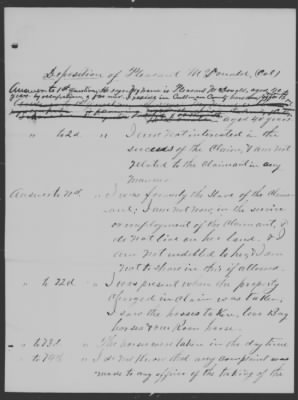 Deposition of Pleasant McDonald, (Col)
Answer to 1st Question He says: My name is Pleasant McDonald, aged
years, by occupation a farmer. I reside in Cullman County
aged 40 years
" to 2d. " I am not interested in the
success of the Claim, & am not
related to the Claimant in any
manner.
Answer to " I was formerly the Slave of the Claim-
ant; I am not now in the service
or employment of the Claimant, &
do not live on his land. & I
am not indebted to him, & am
not to share in this if allowed.
" to 72d. " I was present when the property
charged in claim was taken,
I saw the horses taken, two Bay
horses & one Roan horse.
" to 73d. " The horses were taken in the day time
" to 74th " I do not know that any complaint was
made to any officer of the taking of the